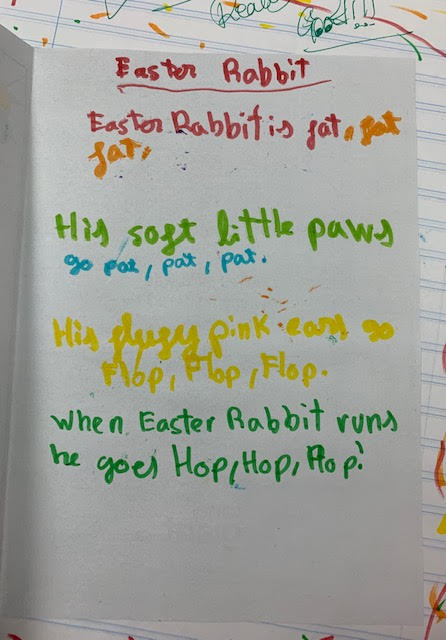 Easter Rabbit
Easter Rabbit is fat, fat
fat,
His soft little paws
go pat, pat, pat.
His pink ears go
Flop, Flop, Flop.
when Easter Rabbit runs
he goes Hop, Hop, Hop!